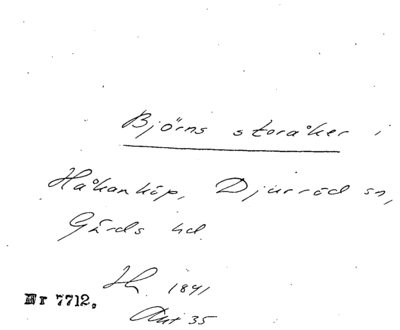 Björns storåker i
Håkanköp, Djurröd sn,
Gärds hd.
1891
Nr 7712.
35